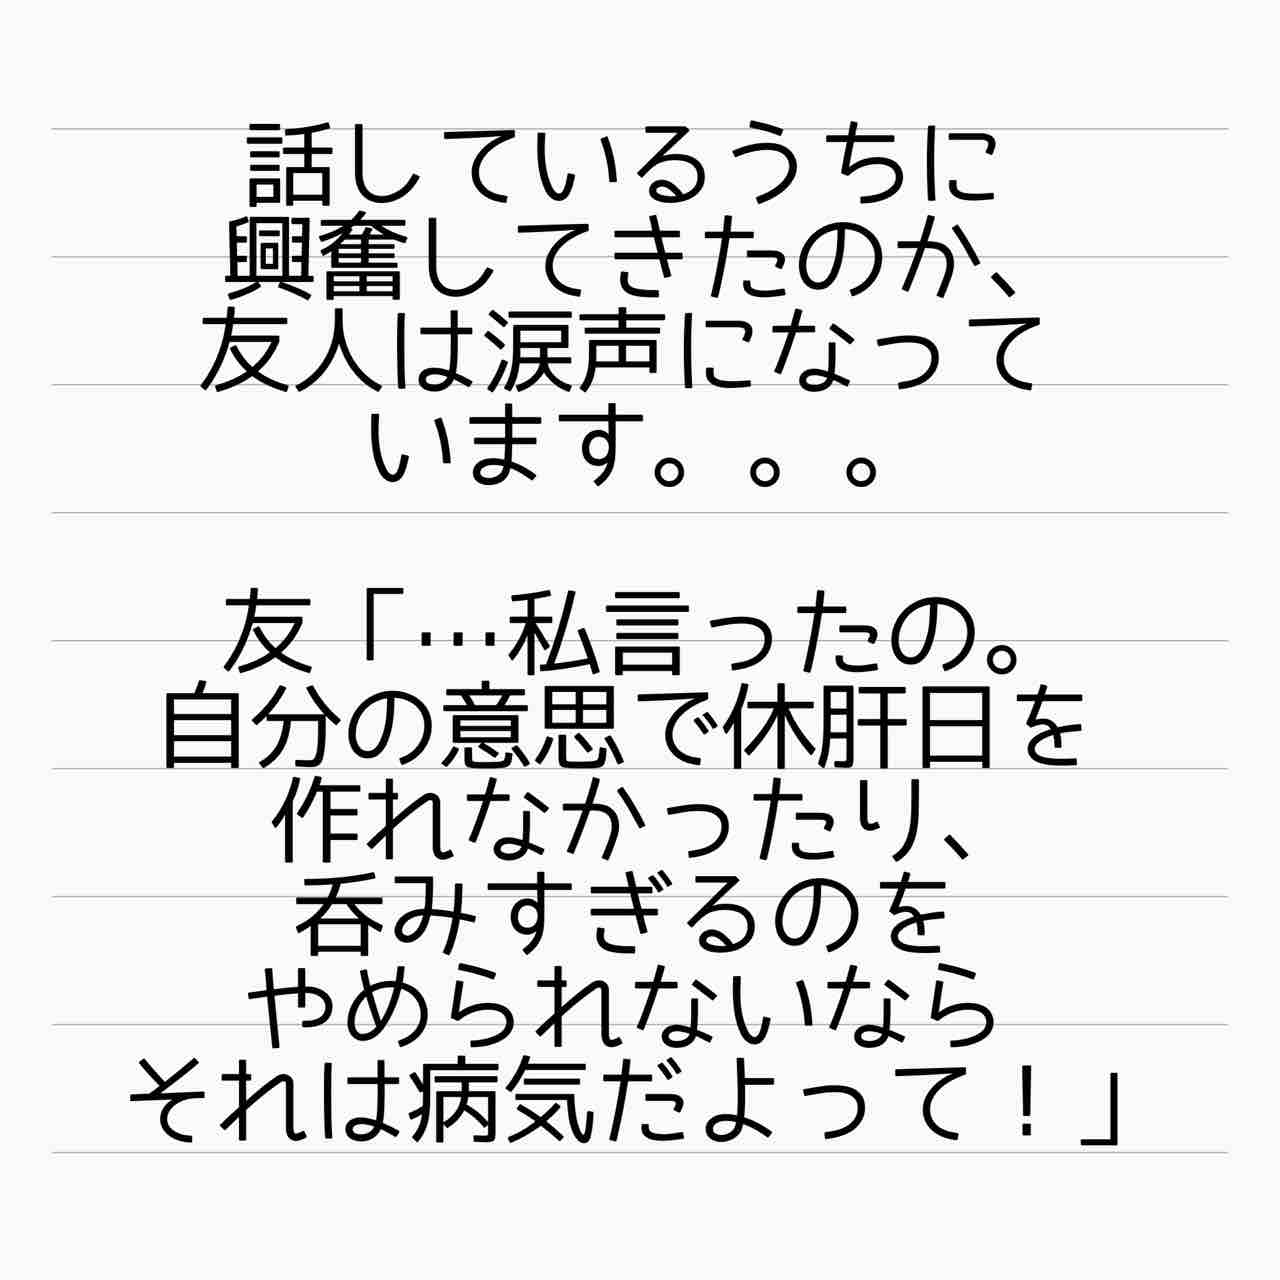 話しているうちに
興奮してきたのか、
友人は涙声になって
います。。。
友「…私言ったの。
自分の意思で休肝日を
作れなかったり、
呑みすぎるのを
やめられないなら
それは病気だよって！」